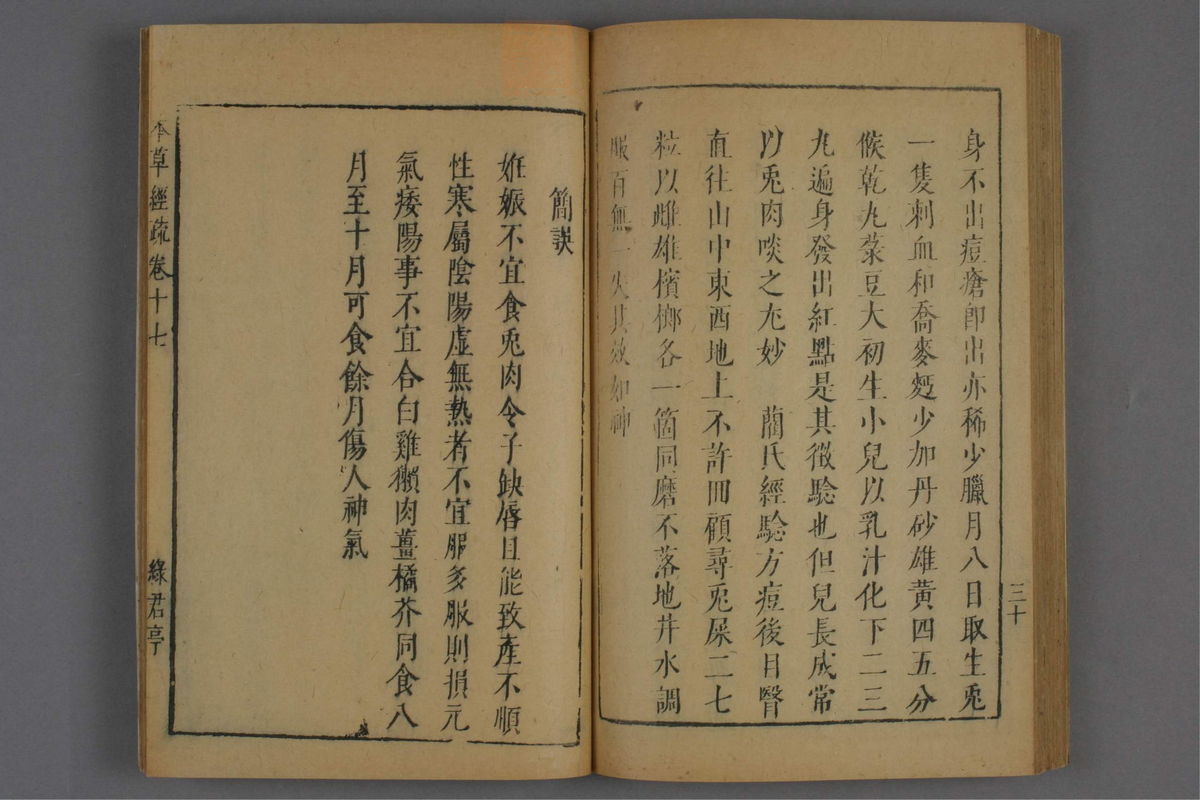 身不出痘瘡卽出亦稀少臘月八日取生兎
一隻刺血和喬麥麪少加丹砂雄黃四五分
候乾丸菉豆大初生小兒以乳汁化下二三
丸遍身發出紅點是其徵驗也但兒長成常
以兎肉啖之尤妙　藺氏經驗方痘後目瞖
直往山中東西地上不許回顧尋兎屎二七
粒以雌雄檳榔各一箇同磨不落地井水調
服百無一失其效如神
三十
簡誤
姙娠不宜食兎肉令子缺唇且能致產不順
性寒屬陰陽虛無熱者不宜服多服則損元
氣痿陽事不宜合白雞獺肉薑橘芥同食八
月至十月可食餘月傷人神氣
本草經疏卷十七
綠君亭